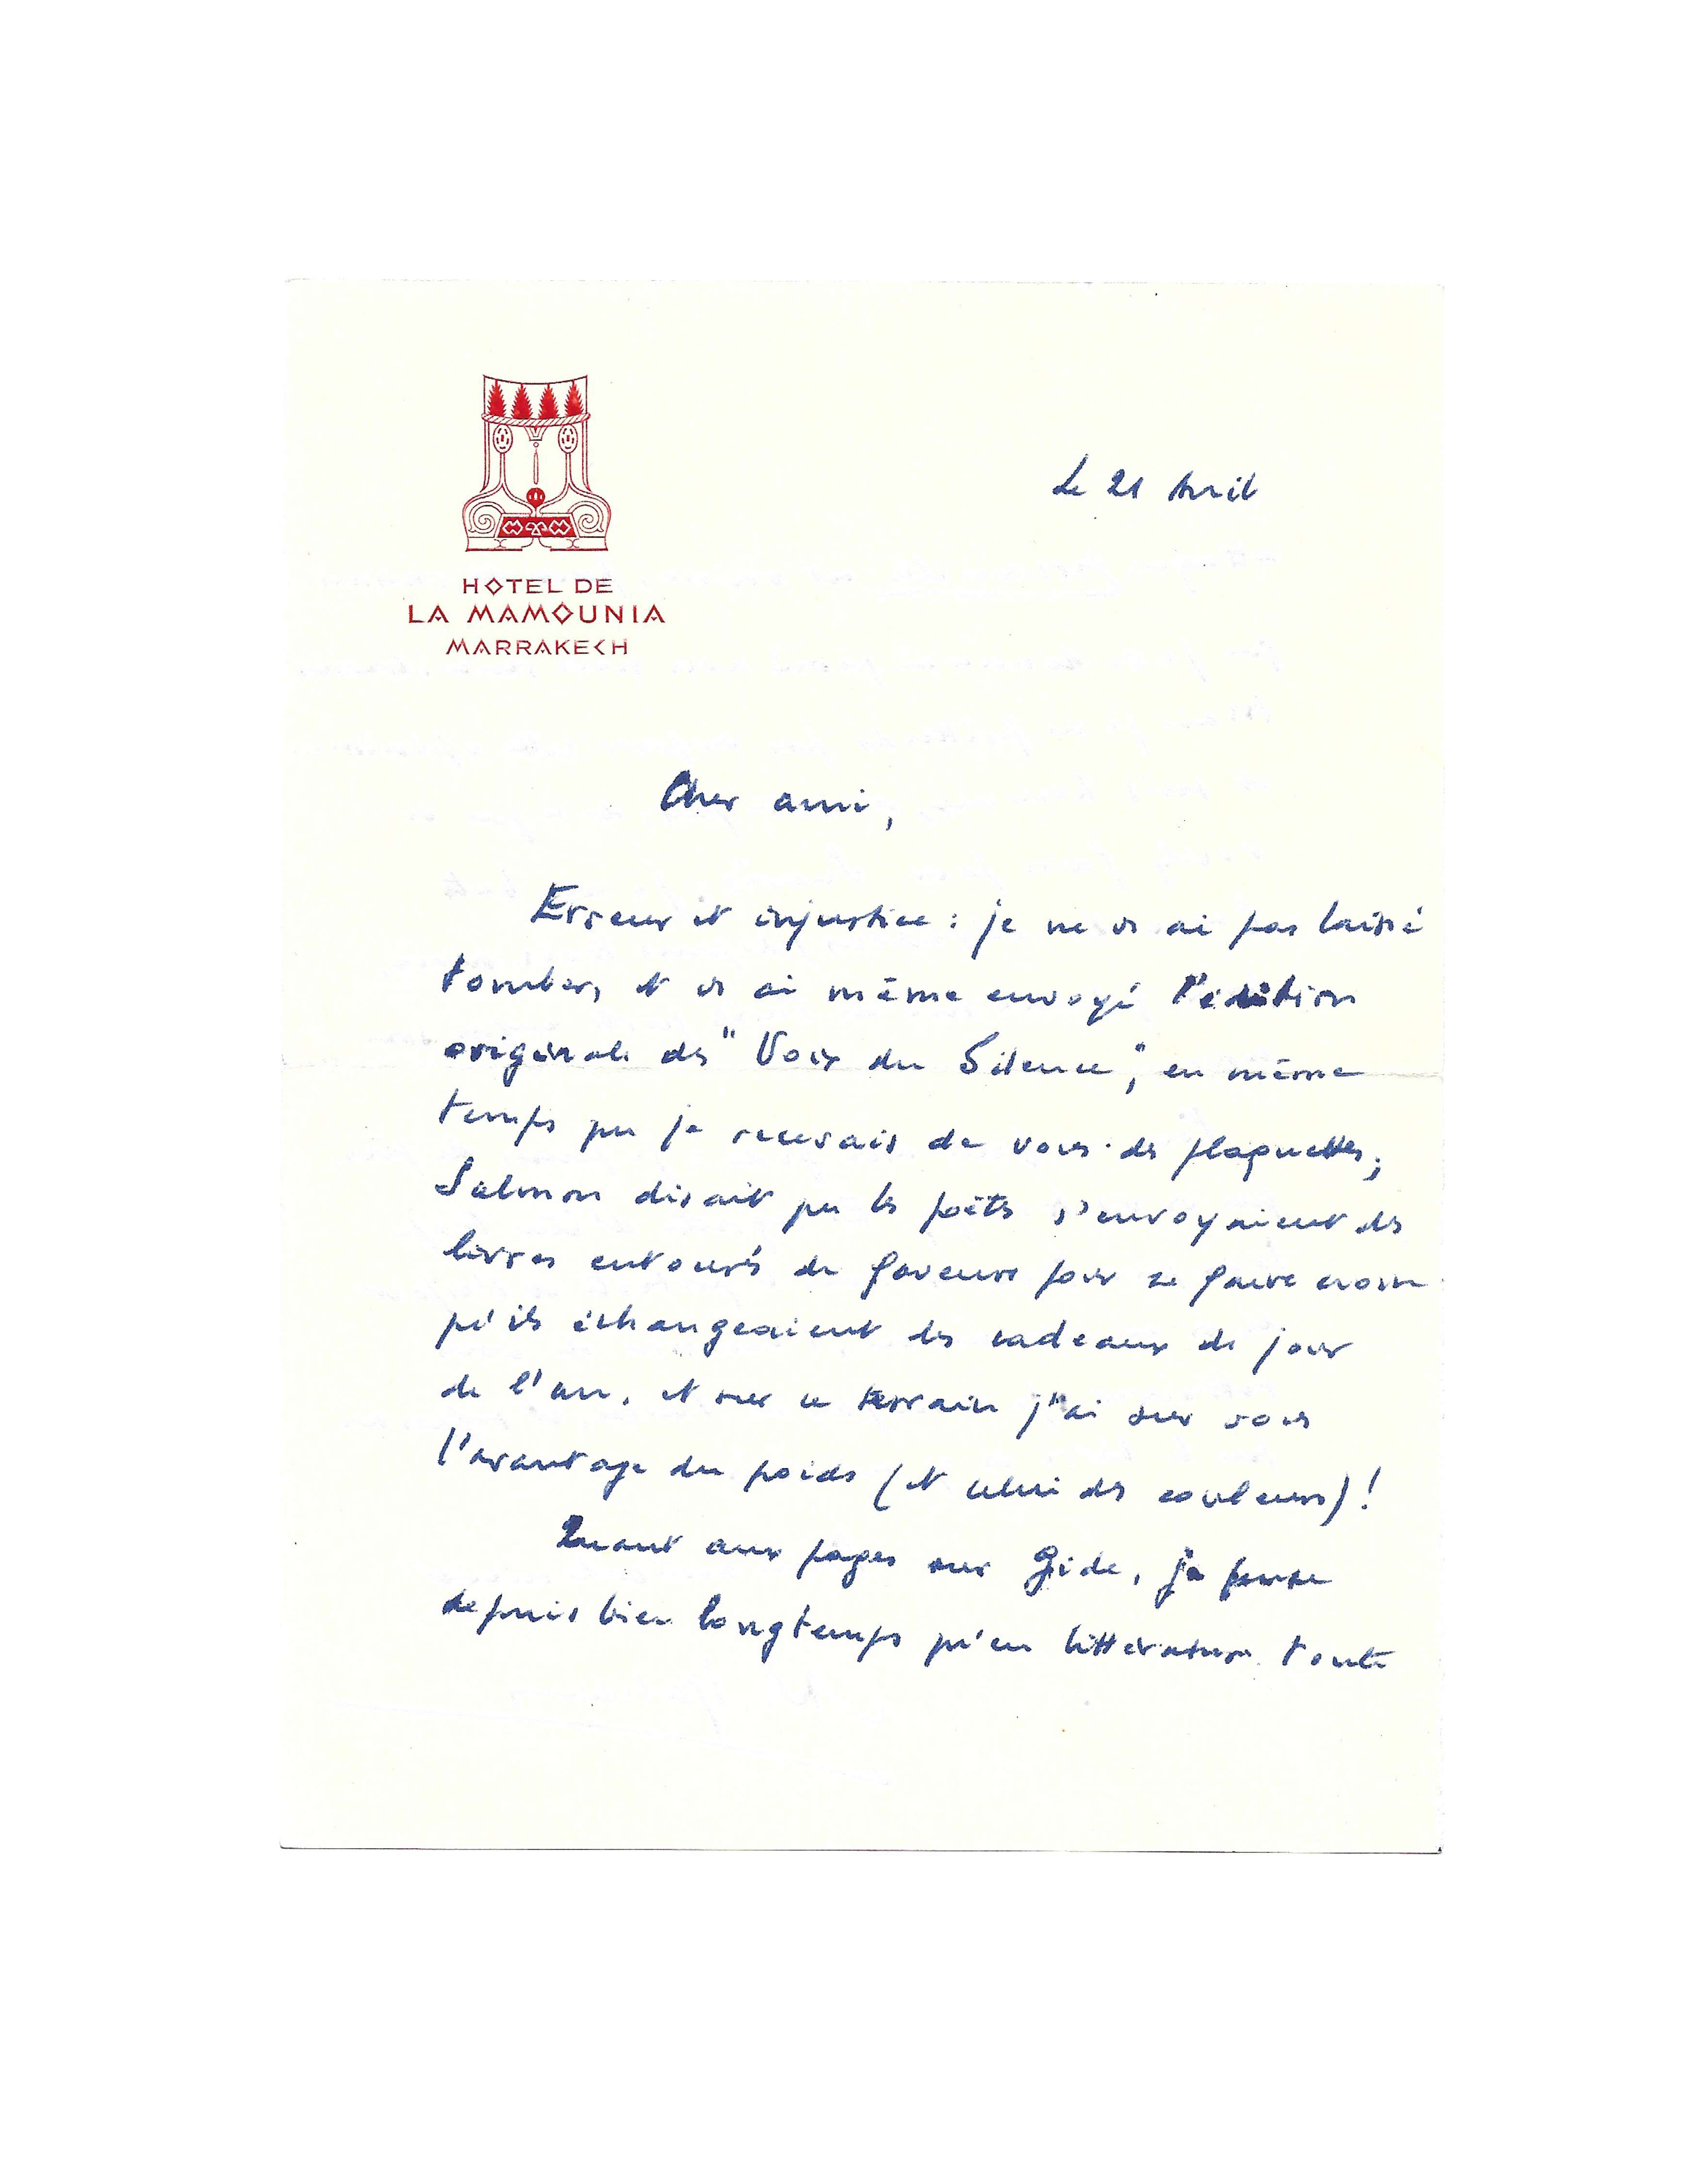 HOTEL DE
LA MAMOUNIA
MARRAKECH
Le 21 Avril
Cher ami,
Erreur et injustice : je ne vs ai pas laissé
tomber, et vs ai même envoyé l'édition
originale des "Voix du Silence", en même
temps que je recevais de vous des plaquettes;
Salmon disait que les poètes s'envoyaient des
livres entourés de faveurs pour se faire croire
qu'ils échangeaient des cadeaux de jour
de l'an, et sur ce terrain j'ai sur vous
l'avantage du poids (et celui des couleurs)!
Quant aux pages sur Gide, je pense
depuis bien longtemps qu'en littérature toute